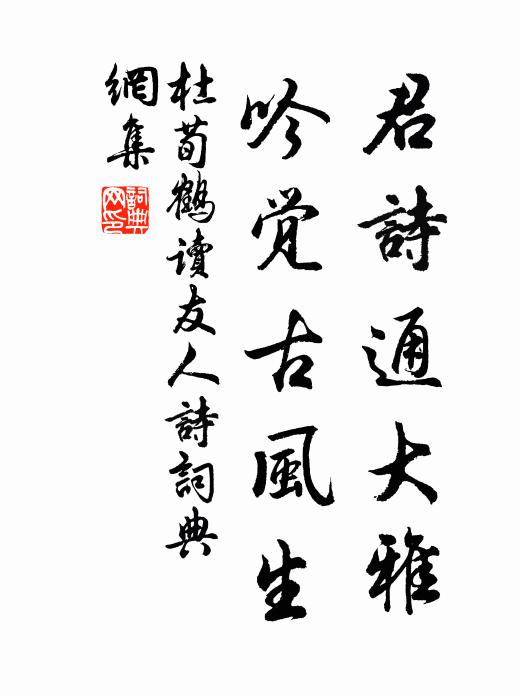 君詩通大雅
吟觉古風生
杜荀鶴讀友人詩詞典
網集
詞典
网印